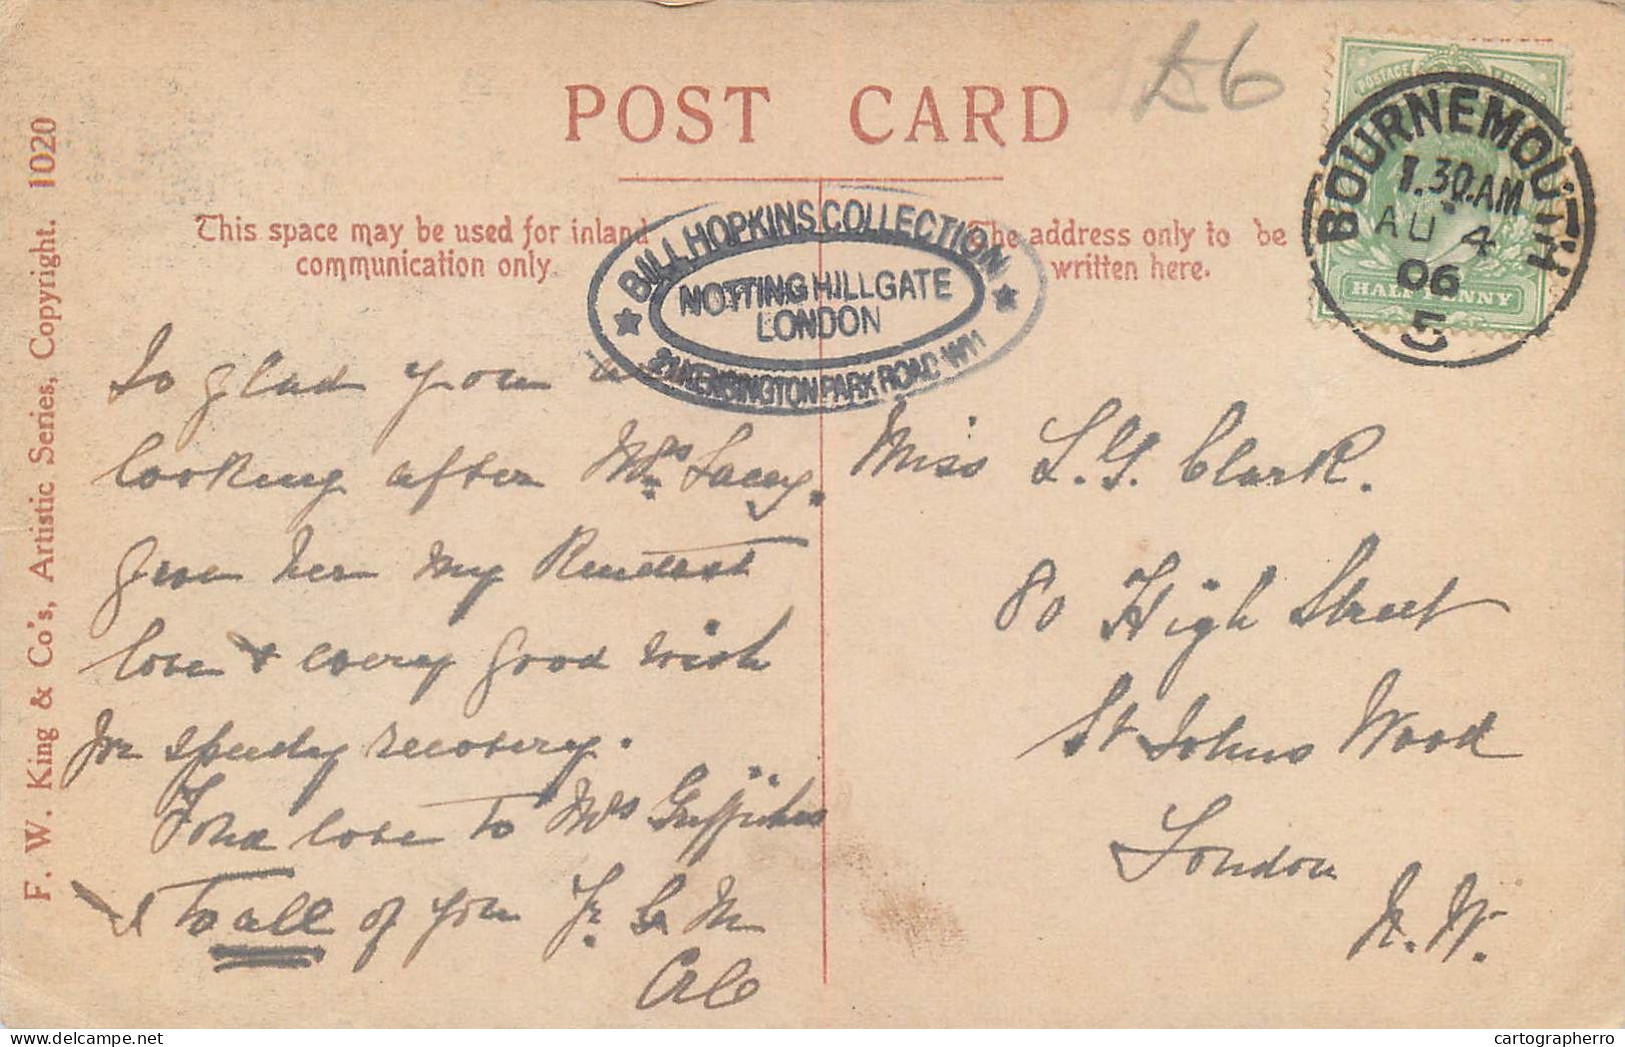 POST CARD
£6
This space may be used for inland
communication only.
The address only to be
written here.
BILL HOPKINS COLLECTION
NOTTING HILLGATE
LONDON
KENSINGTON PARK ROAD W11
POSTAGE
HALF PENNY
BOURNEMOUTH
1.30.AM
AU 4
06
5
F. W. King & Co's, Artistic Series, Copyright. 1020
So glad you
looking after Mrs Lacey.
Give her my Kindest
love & every good wish
for speedy recovery.
Fond love to Mrs Griffiths
& To all of you
Miss L.G. Clark.
80 High Street
St Johns Wood
London
N.W.
cartographerro